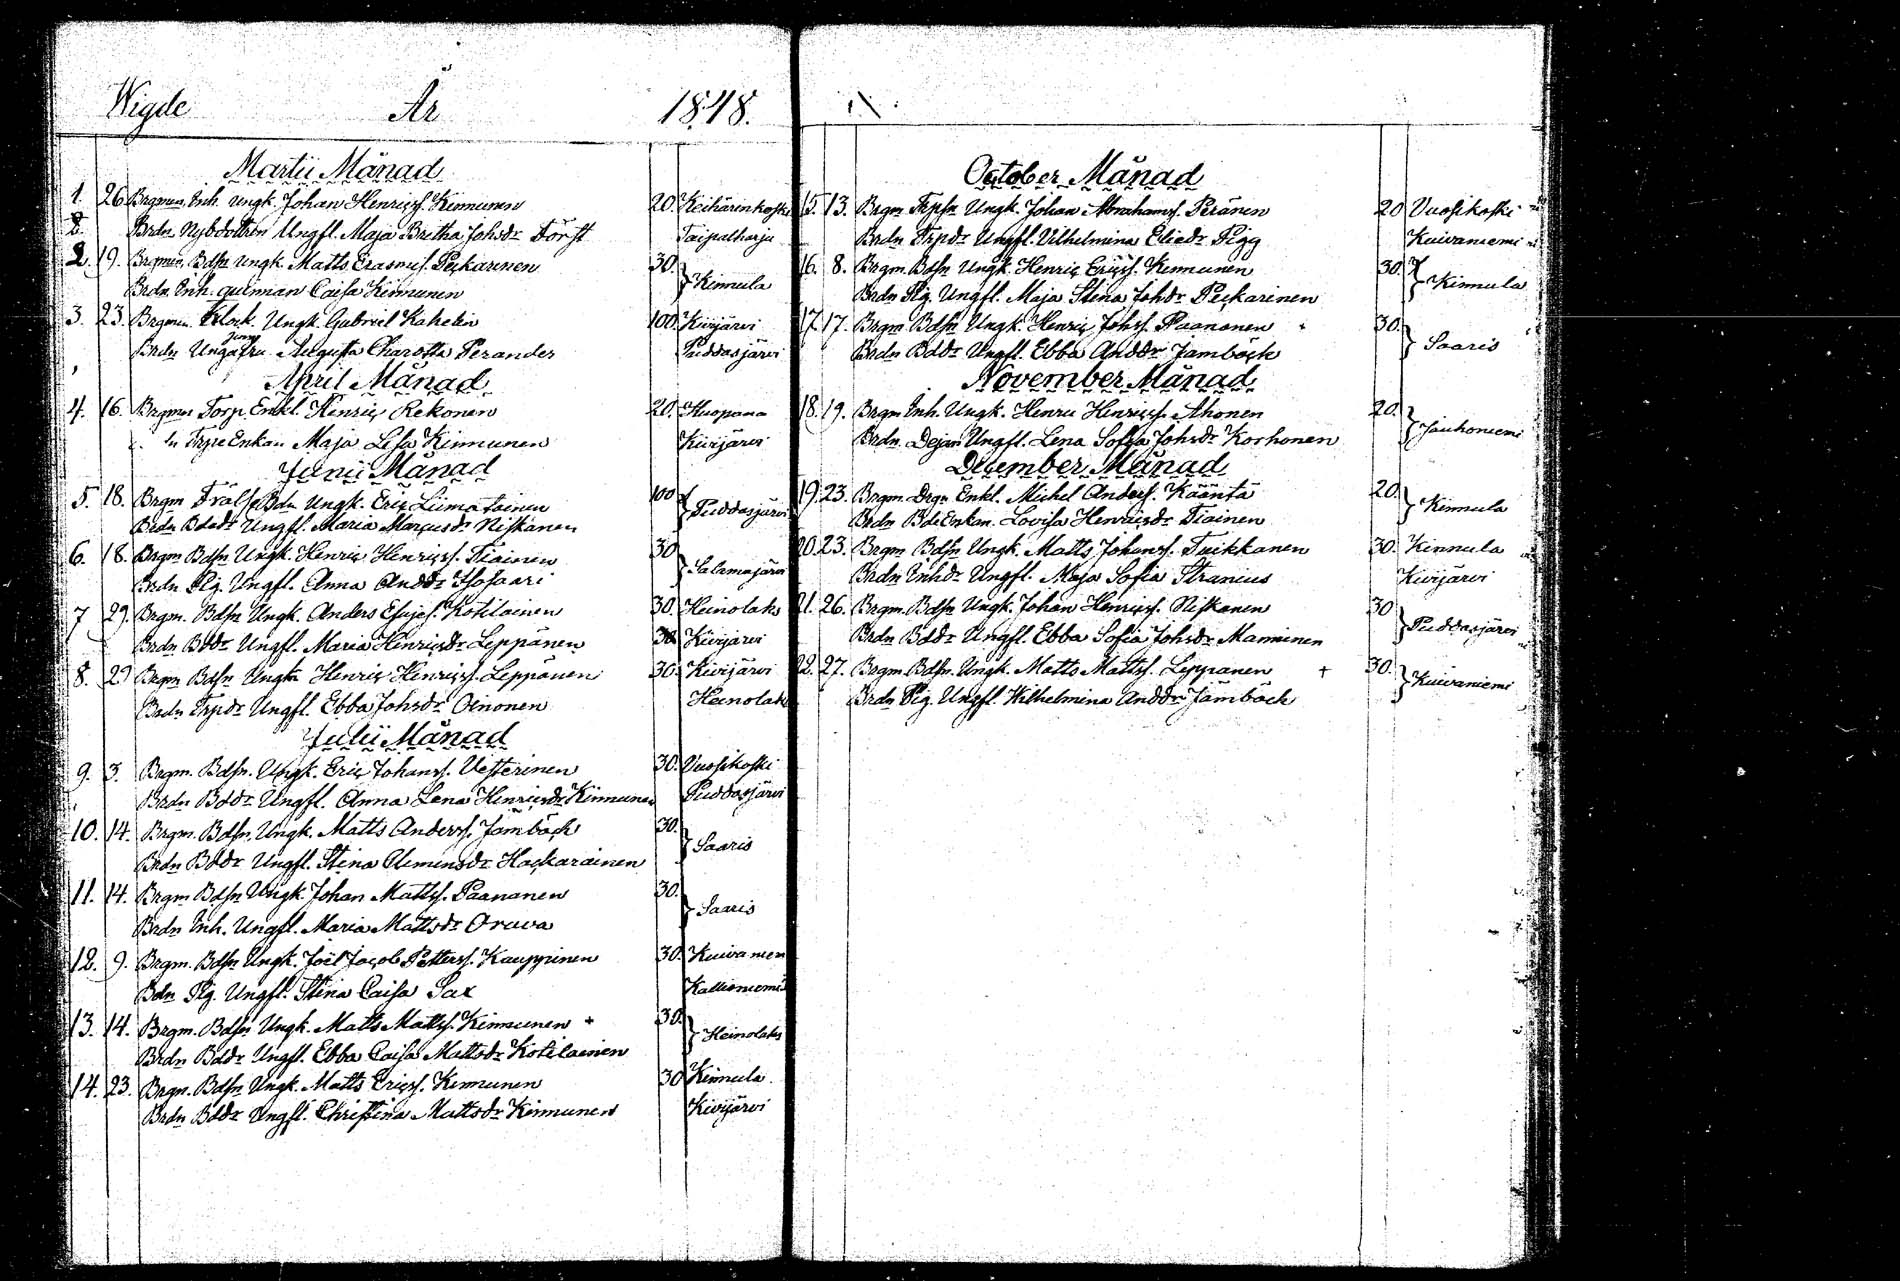 Wigde År 1848.
Martii Månad
1. 26 Brgmen Inh. ungk. Johan Henrics. Kinnunen 20. Keihärinkoski
Brdn. Nybdottren Ungfl. Maja Britha Johsdr Först Taipalharju
2. 19. Brgmen. Bdsn ungk. Matts Erasmus. Peckarinen 30. } Kinnula
Brdn Inh. quinnan Caisa Kinnunen
3. 23. Brgmen. Klock. Ungk. Gabriel Kahelin 100. Kivijärvi
Brdn Jungfru Augusta Charotta Perander Puddasjärvi
April Månad
4. 16. Brgmen Torp. Enkl. Henric Rekonen 20. Huopana
n Trpre Enkan Maja Lisa Kinnunen Kivijärvi
Junii Månad
5. 18. Brgm. Frälse Bdn Ungk. Eric Liimatainen 100 } Puddasjärvi
Brdn Bdedr Ungfl. Maria Marcusdr Niskanen
6. 18. Brgm Bdsn Ungk. Henric Henricss. Tiainen 30 } Salamajärvi
Brdn Pig. Ungfl. Anna Anddr Isosaari
7 29. Brgm. Bdsn Ungk. Anders Esajes. Kotilainen 30. Heinolaks
Brdn Bddr Ungfl. Maria Henricsdr Leppänen Kivijärvi
8. 29 Brgm Bdsn Ungk Henric Henricss. Leppänen 30. Kivijärvi
Brdn Trpdr Ungfl. Ebba Johsdr Oinonen Heinolaks
Julii Månad
9. 3. Brgm. Bdsn. Ungk. Eric Johanss. Vesterinen 30. Vuosikoski
Brdn Bddr Ungfl. Anna Lena Henricsdr Kinnunen Puddasjärvi
10. 14. Brgm. Bdsn. Ungk. Matts Anderss. Jämbäck 30. } Saaris
Brdn Bddr Ungfl. Stina Clemensdr Hackarainen
11. 14. Brgm Bdsn Ungk. Johan Mattss. Paananen 30. } Saaris
Brdn Inh. Ungfl. Maria Mattsdr Orava
12. 9. Brgm. Bdsn Ungk. Joel Jacob Petterss. Kauppinen 30. Kuivaniem
Bdn Pig. Ungfl. Stina Caisa Sax Kallioniemi
13. 14. Brgm. Bdsn Ungk. Matts Mattss. Kinnunen + 30. } Heinolaks
Brdn Bddr Ungfl. Ebba Caisa Mattsdr Kotilainen
14. 23. Brgm. Bdsn Ungk. Matts Ericss. Kinnunen 30 Kinnula.
Brdn Bddr Ungfl. Christina Mattsdr Kinnunen Kivijärvi
October Månad
15. 13. Brgm Trpsn Ungk. Johan Abrahamss. Peränen 20 Vuosikoski
Brdn Trpdr Ungfl. Vilhelmina Eliedr Pigg Kuivaniemi
16. 8. Brgm. Bdsn Ungk. Henric Ericss. Kinnunen 30. } Kinnula
Brdn Pig. Ungfl. Maja Stina Johdr Peckarinen
17. 17. Brgm Bdsn Ungk. Henric Johss. Paananen 30. } Saaris
Brdn Bddr Ungfl. Ebba Anddr Jämbäck
November Månad
18. 19. Brgm Inh. Ungk. Henric Henricss. Ahonen 20. } Jauhoniemi
Brdn. Dejan Ungfl. Lena Sofia Johsdr Korhonen
December Månad
19. 23. Brgm. Drgn Enkl. Michel Anderss. Kääntä 20. } Kinnula
Brdn BdeEnkan. Lovisa Henricsdr Tiainen
20. 23. Brgm Bdsn Ungk. Matts Johanss. Tuikkanen 30. Kinnula
Brdn Inhdr Ungfl. Maja Sofia Stranius Kivijärvi
21. 26. Brgm. Bdsn Ungk. Johan Henricss. Niskanen 30 } Puddasjärvi
Brdn Bddr Ungfl. Ebba Sofia Johsdr Manninen
22. 27. Brgm. Bdsn. Ungk. Matts Mattss. Leppänen + 30. } Kuivaniemi
Brdn Pig. Ungfl. Wilhelmina Anddr Jämbäck